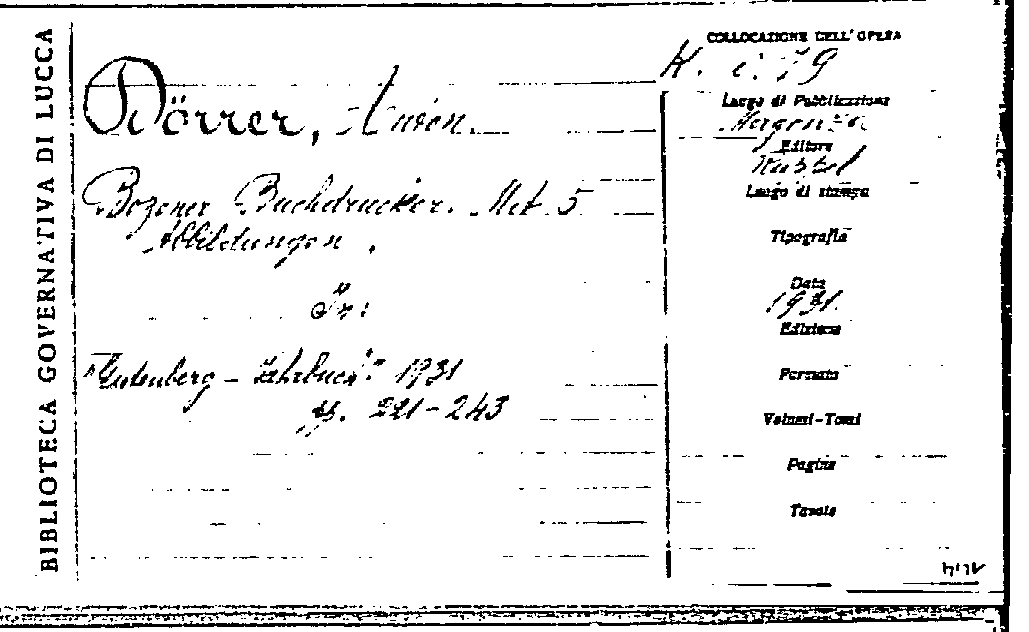 BIBLIOTECA GOVERNATIVA DI LUCCA
Dörrer, Anton.
Bozener Buchdrucker. Mit 5
Abbildungen.
In:
"Gutenberg - Jahrbuch" 1931
pp. 221-243
COLLOCAZIONE DELL'OPERA
K. c. 79
Luogo di Pubblicazione
Magonza
Editore
Luogo di stampa
Tipografia
Data
1931.
Edizione
Formato
Volumi-Tomi
Pagine
Tavole